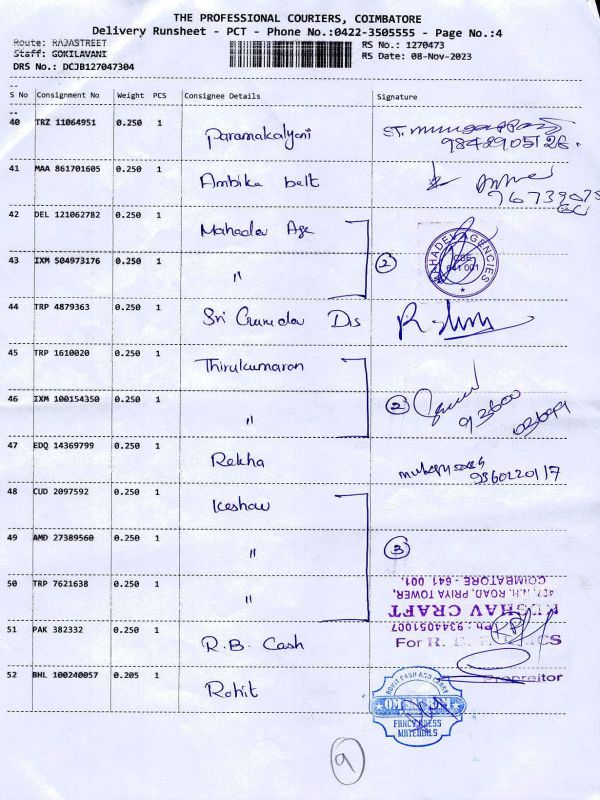 THE PROFESSIONAL COURIERS, COIMBATORE
Delivery Runsheet - PCT - Phone No.:0422-3505555 - Page No.:4
Route: RAJASTREET RS No.: 1270473
Staff: GOKILAVANI RS Date: 08-Nov-2023
DRS No.: DCJB127047304
S No Consignment No Weight PCS Consignee Details Signature
40 TRZ 11064951 0.250 1 Paramakalyani
41 MAA 861701605 0.250 1 Ambika belt
42 DEL 121062782 0.250 1 Mahadev Age
43 IXM 504973176 0.250 1 " 2
MAHADEV AGENCIES
CBE
641 001
44 TRP 4879363 0.250 1 Sri Dis
45 TRP 1610020 0.250 1 Thirukumaran
46 IXM 100154350 0.250 1 " 2
93600
47 EDQ 14369799 0.250 1 Rekha 9360220117
48 CUD 2097592 0.250 1 Keshav
49 AMD 27389560 0.250 1 " 3
50 TRP 7621638 0.250 1 "
COIMBATORE - 641 001.
407, N.H. ROAD, PRIYA TOWER,
KESHAV CRAFT
Ph : 9344051007
51 PAK 382332 0.250 1 R.B. Cash
For R.
Propreitor
52 BHL 100240057 0.205 1 Rohit
ROHIT CASH AND CARRY
FANCY DRESS
MATERIALS
9